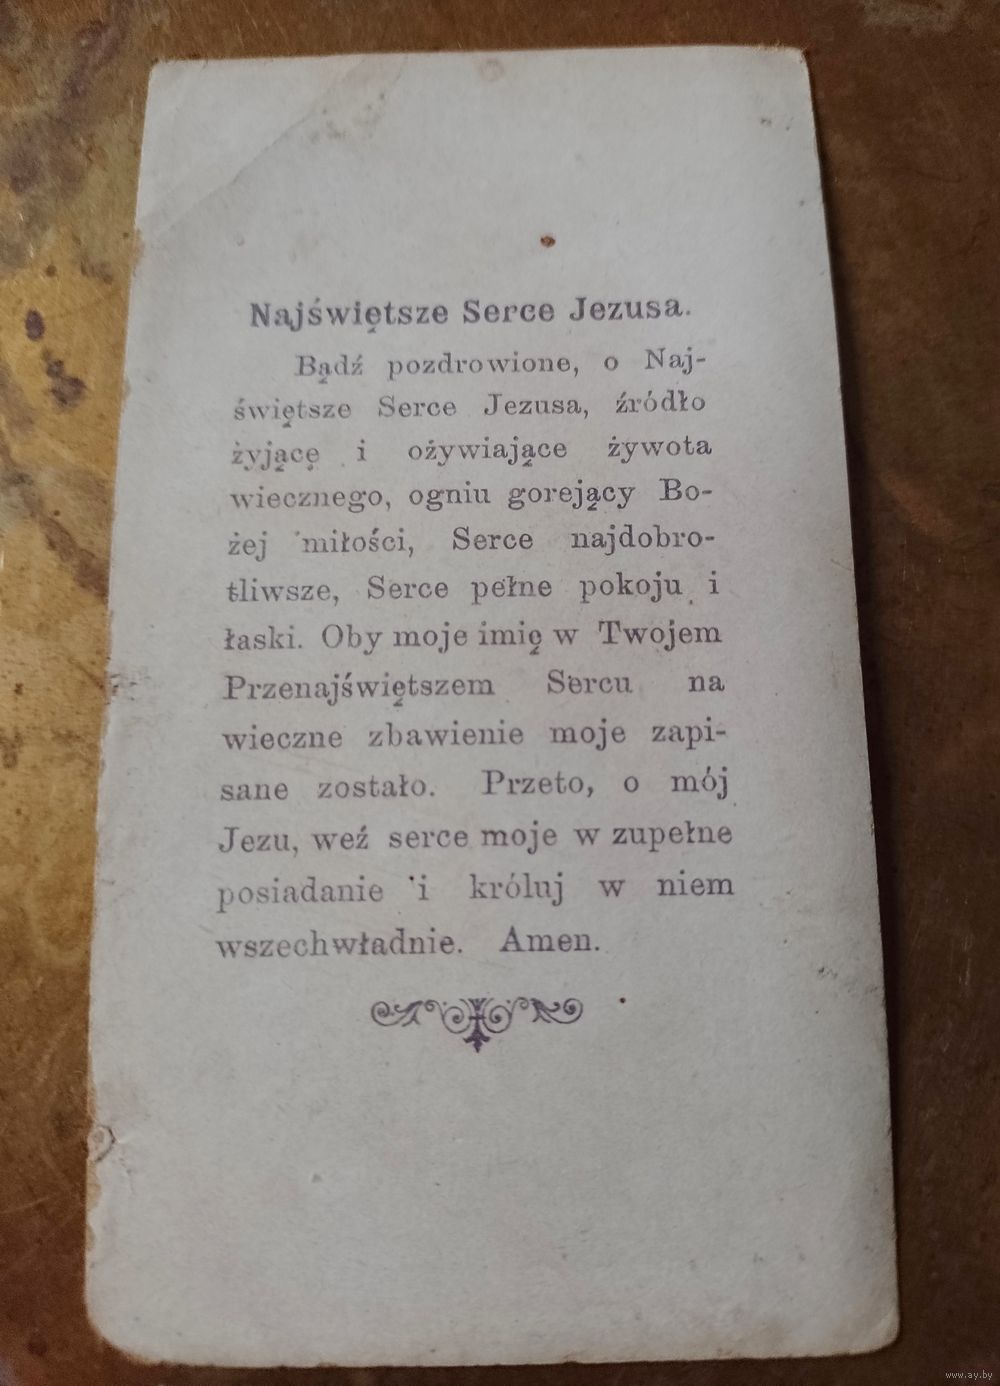 Najświętsze Serce Jezusa.
Bądź pozdrowione, o Naj-
świętsze Serce Jezusa, źródło
żyjącę i ożywiające żywota
wiecznego, ogniu gorejący Bo-
żej miłości, Serce najdobro-
tliwsze, Serce pełne pokoju i
łaski. Oby moje imię w Twojem
Przenajświętszem Sercu na
wieczne zbawienie moje zapi-
sane zostało. Przeto, o mój
Jezu, weź serce moje w zupełne
posiadanie i króluj w niem
wszechwładnie. Amen.
www.ay.by